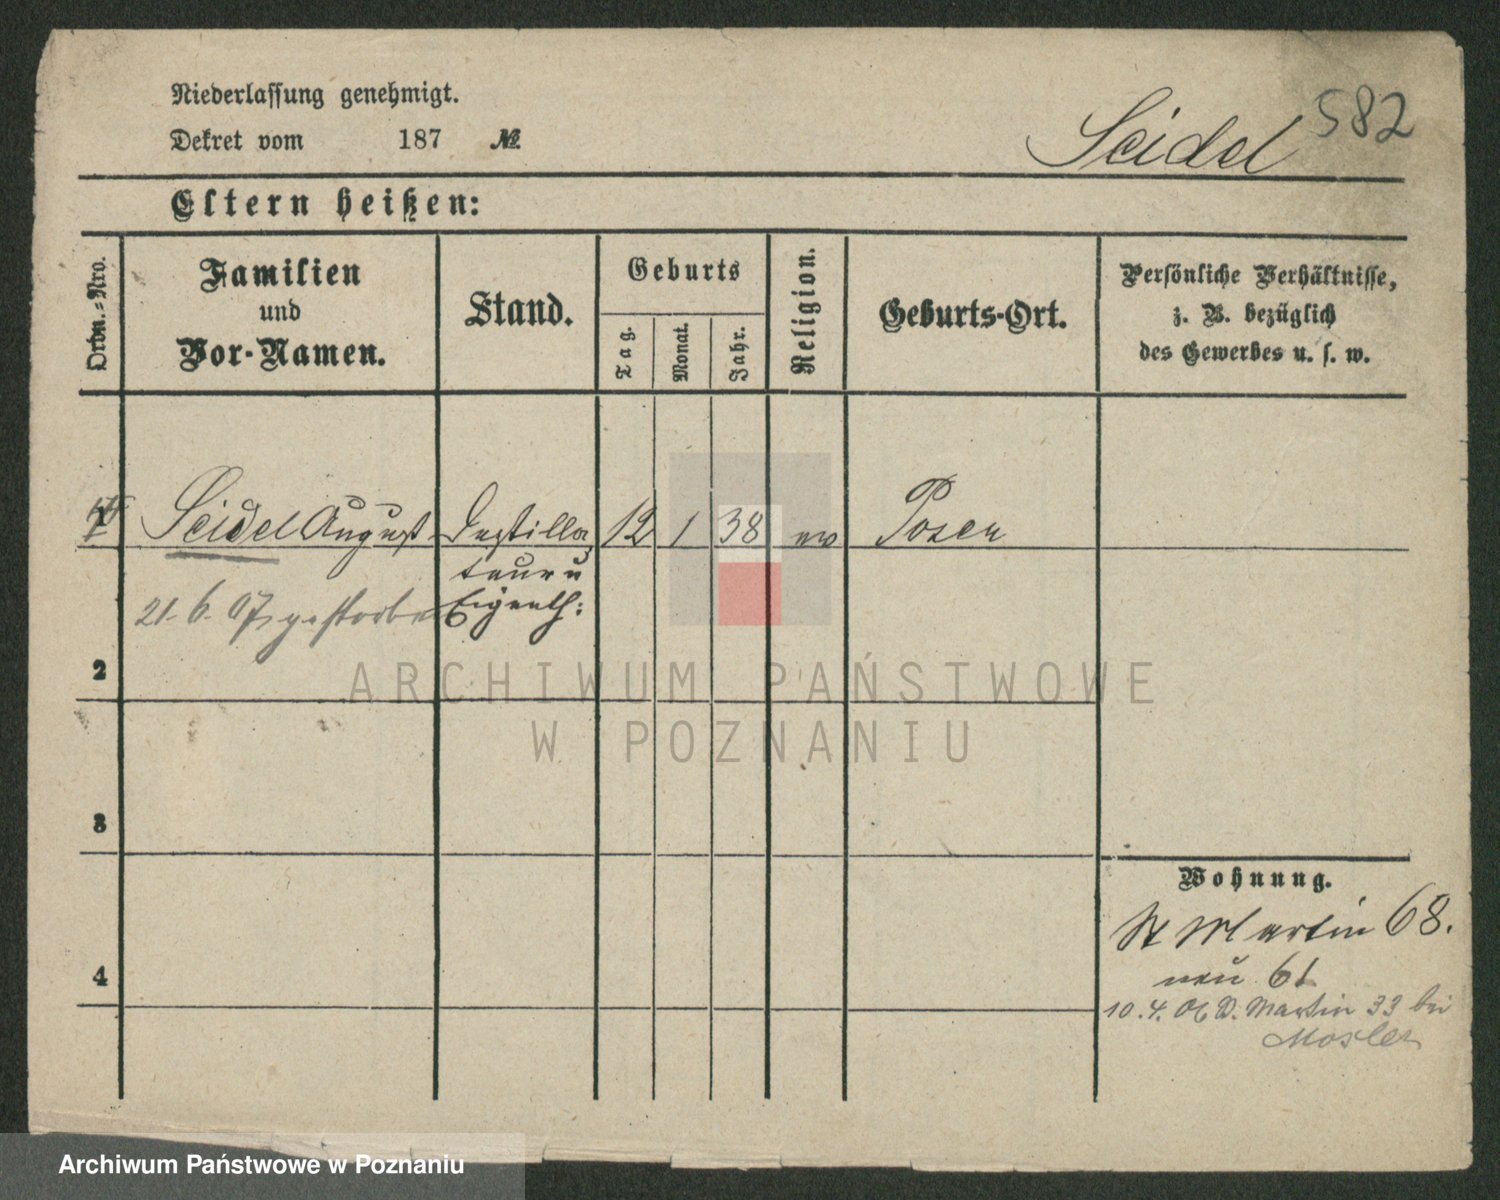 Niederlassung genehmigt.
Dekret vom 187 №
Seidel 582
Eltern heißen:
Ordn.-Nro.
Familien
und
Vor-Namen.
Stand.
Geburts
Tag.
Monat.
Jahr.
Religion.
Geburts-Ort.
Persönliche Verhältnisse,
z. B. bezüglich
des Gewerbes u. s. w.
1 Seidel August Destilla 12 1 38 ev Posen
teur u
21. 6. 07 gestorben Eigenth:
2
3
4
Wohnung.
St Martin 68.
neu 61
10. 4. 06 D. Martin 33 bei
Mosler
ARCHIWUM PAŃSTWOWE
W POZNANIU
Archiwum Państwowe w Poznaniu